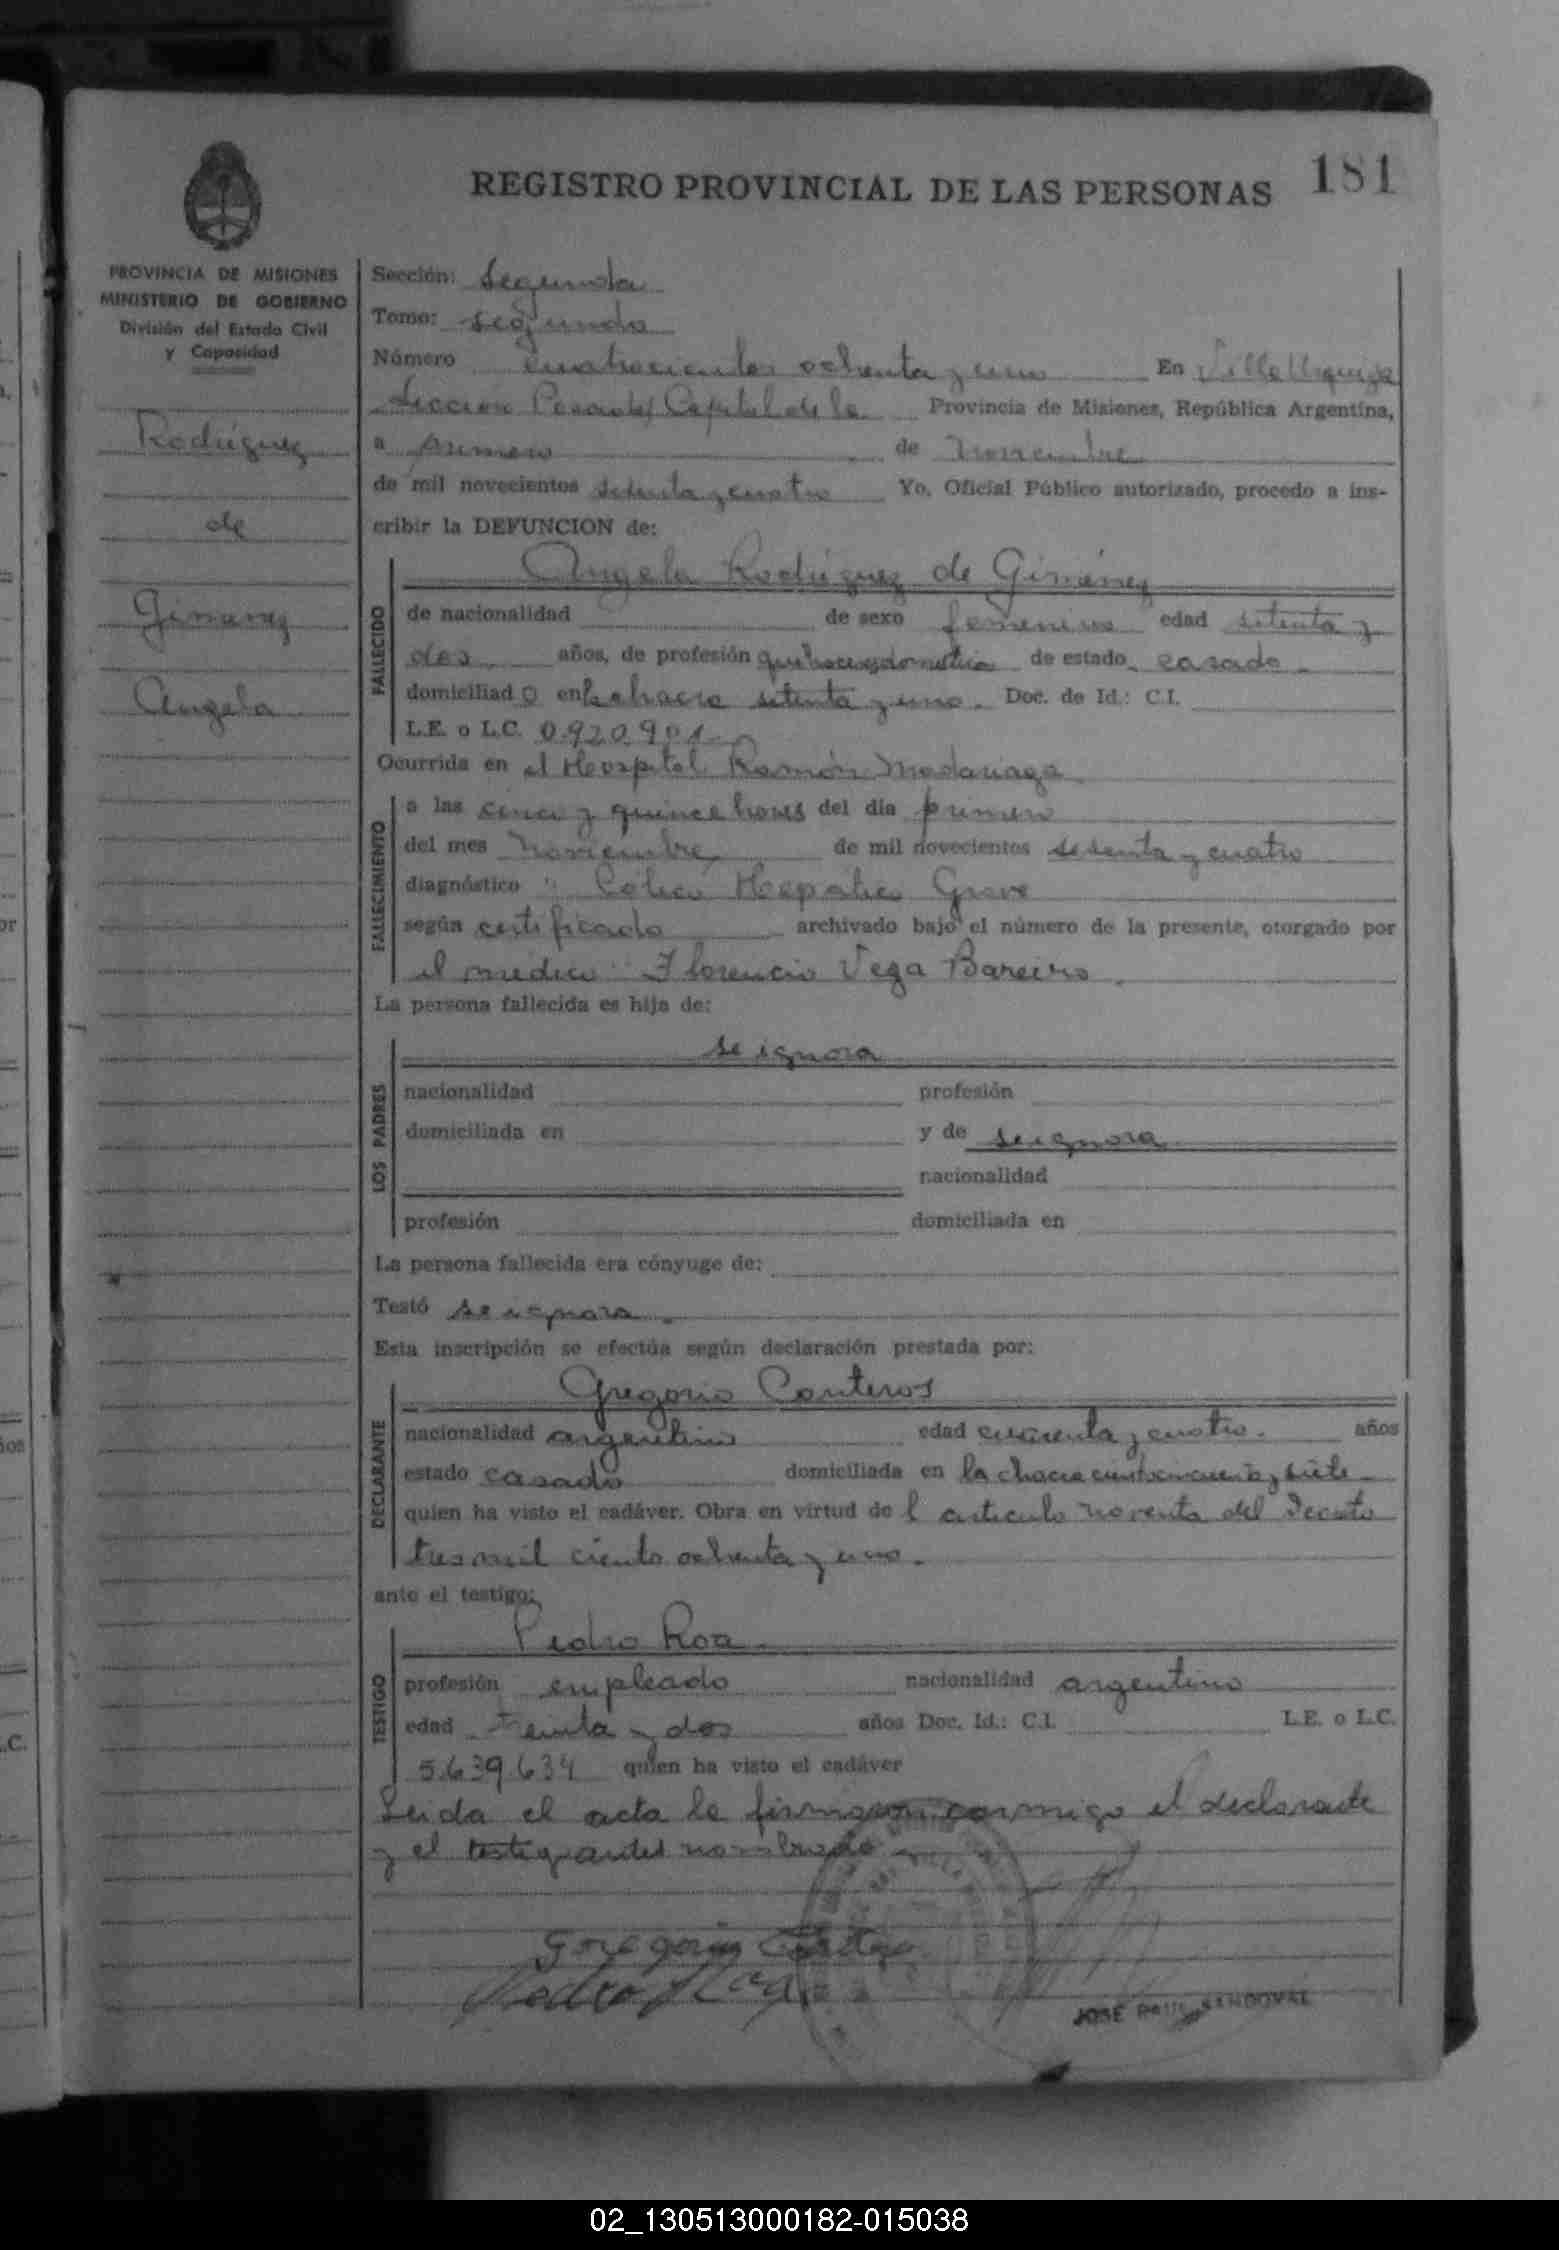 181
REGISTRO PROVINCIAL DE LAS PERSONAS
PROVINCIA DE MISIONES
MINISTERIO DE GOBIERNO
División del Estado Civil
y Capacidad
Rodríguez
de
Gimenez
Angela
Sección: Segunda
Tomo: segundo
Número cuatrocientos ochenta y uno En Villa Urquiza
Sección Posadas Capital de la Provincia de Misiones, República Argentina,
a primero de noviembre
de mil novecientos setenta y cuatro Yo, Oficial Público autorizado, procedo a ins-
cribir la DEFUNCION de:
Angela Rodríguez de Giménez
FALLECIDO
de nacionalidad de sexo femenino edad setenta y
dos años, de profesión de estado casada
domiciliad o en chacra setenta y uno. Doc. de Id.: C.I.
L.E. o L.C. 0.920.901
Ocurrida en el Hospital Ramón Madariaga
FALLECIMIENTO
a las cinco y quince horas del día primero
del mes noviembre de mil novecientos setenta y cuatro
diagnóstico " Cólico Hepático Grave
según certificado archivado bajo el número de la presente, otorgado por
el médico Florencio Vega Bareiro
La persona fallecida es hija de:
LOS PADRES
se ignora
nacionalidad profesión
domiciliada en y de se ignora
nacionalidad
profesión domiciliada en
La persona fallecida era cónyuge de:
Testó se ignora.
Esta inscripción se efectúa según declaración prestada por:
DECLARANTE
Gregorio Conteros
nacionalidad argentino edad cuarenta y cuatro. años
estado casado domiciliada en la chacra ciento cincuenta y siete
quien ha visto el cadáver. Obra en virtud de l articulo noventa del Decreto
tres mil ciento ochenta y uno.
ante el testigo:
TESTIGO
Pedro Roa.
profesión empleado nacionalidad argentino
edad treinta y dos años Doc. Id.: C.I. L.E. o L.C.
5.639.634 quien ha visto el cadáver
Leida el acta la firma conmigo el declarante
y el testigo antes nombrado
Gregorio
Pedro Roa
JOSE RAUL SANDOVAL
02_130513000182-015038